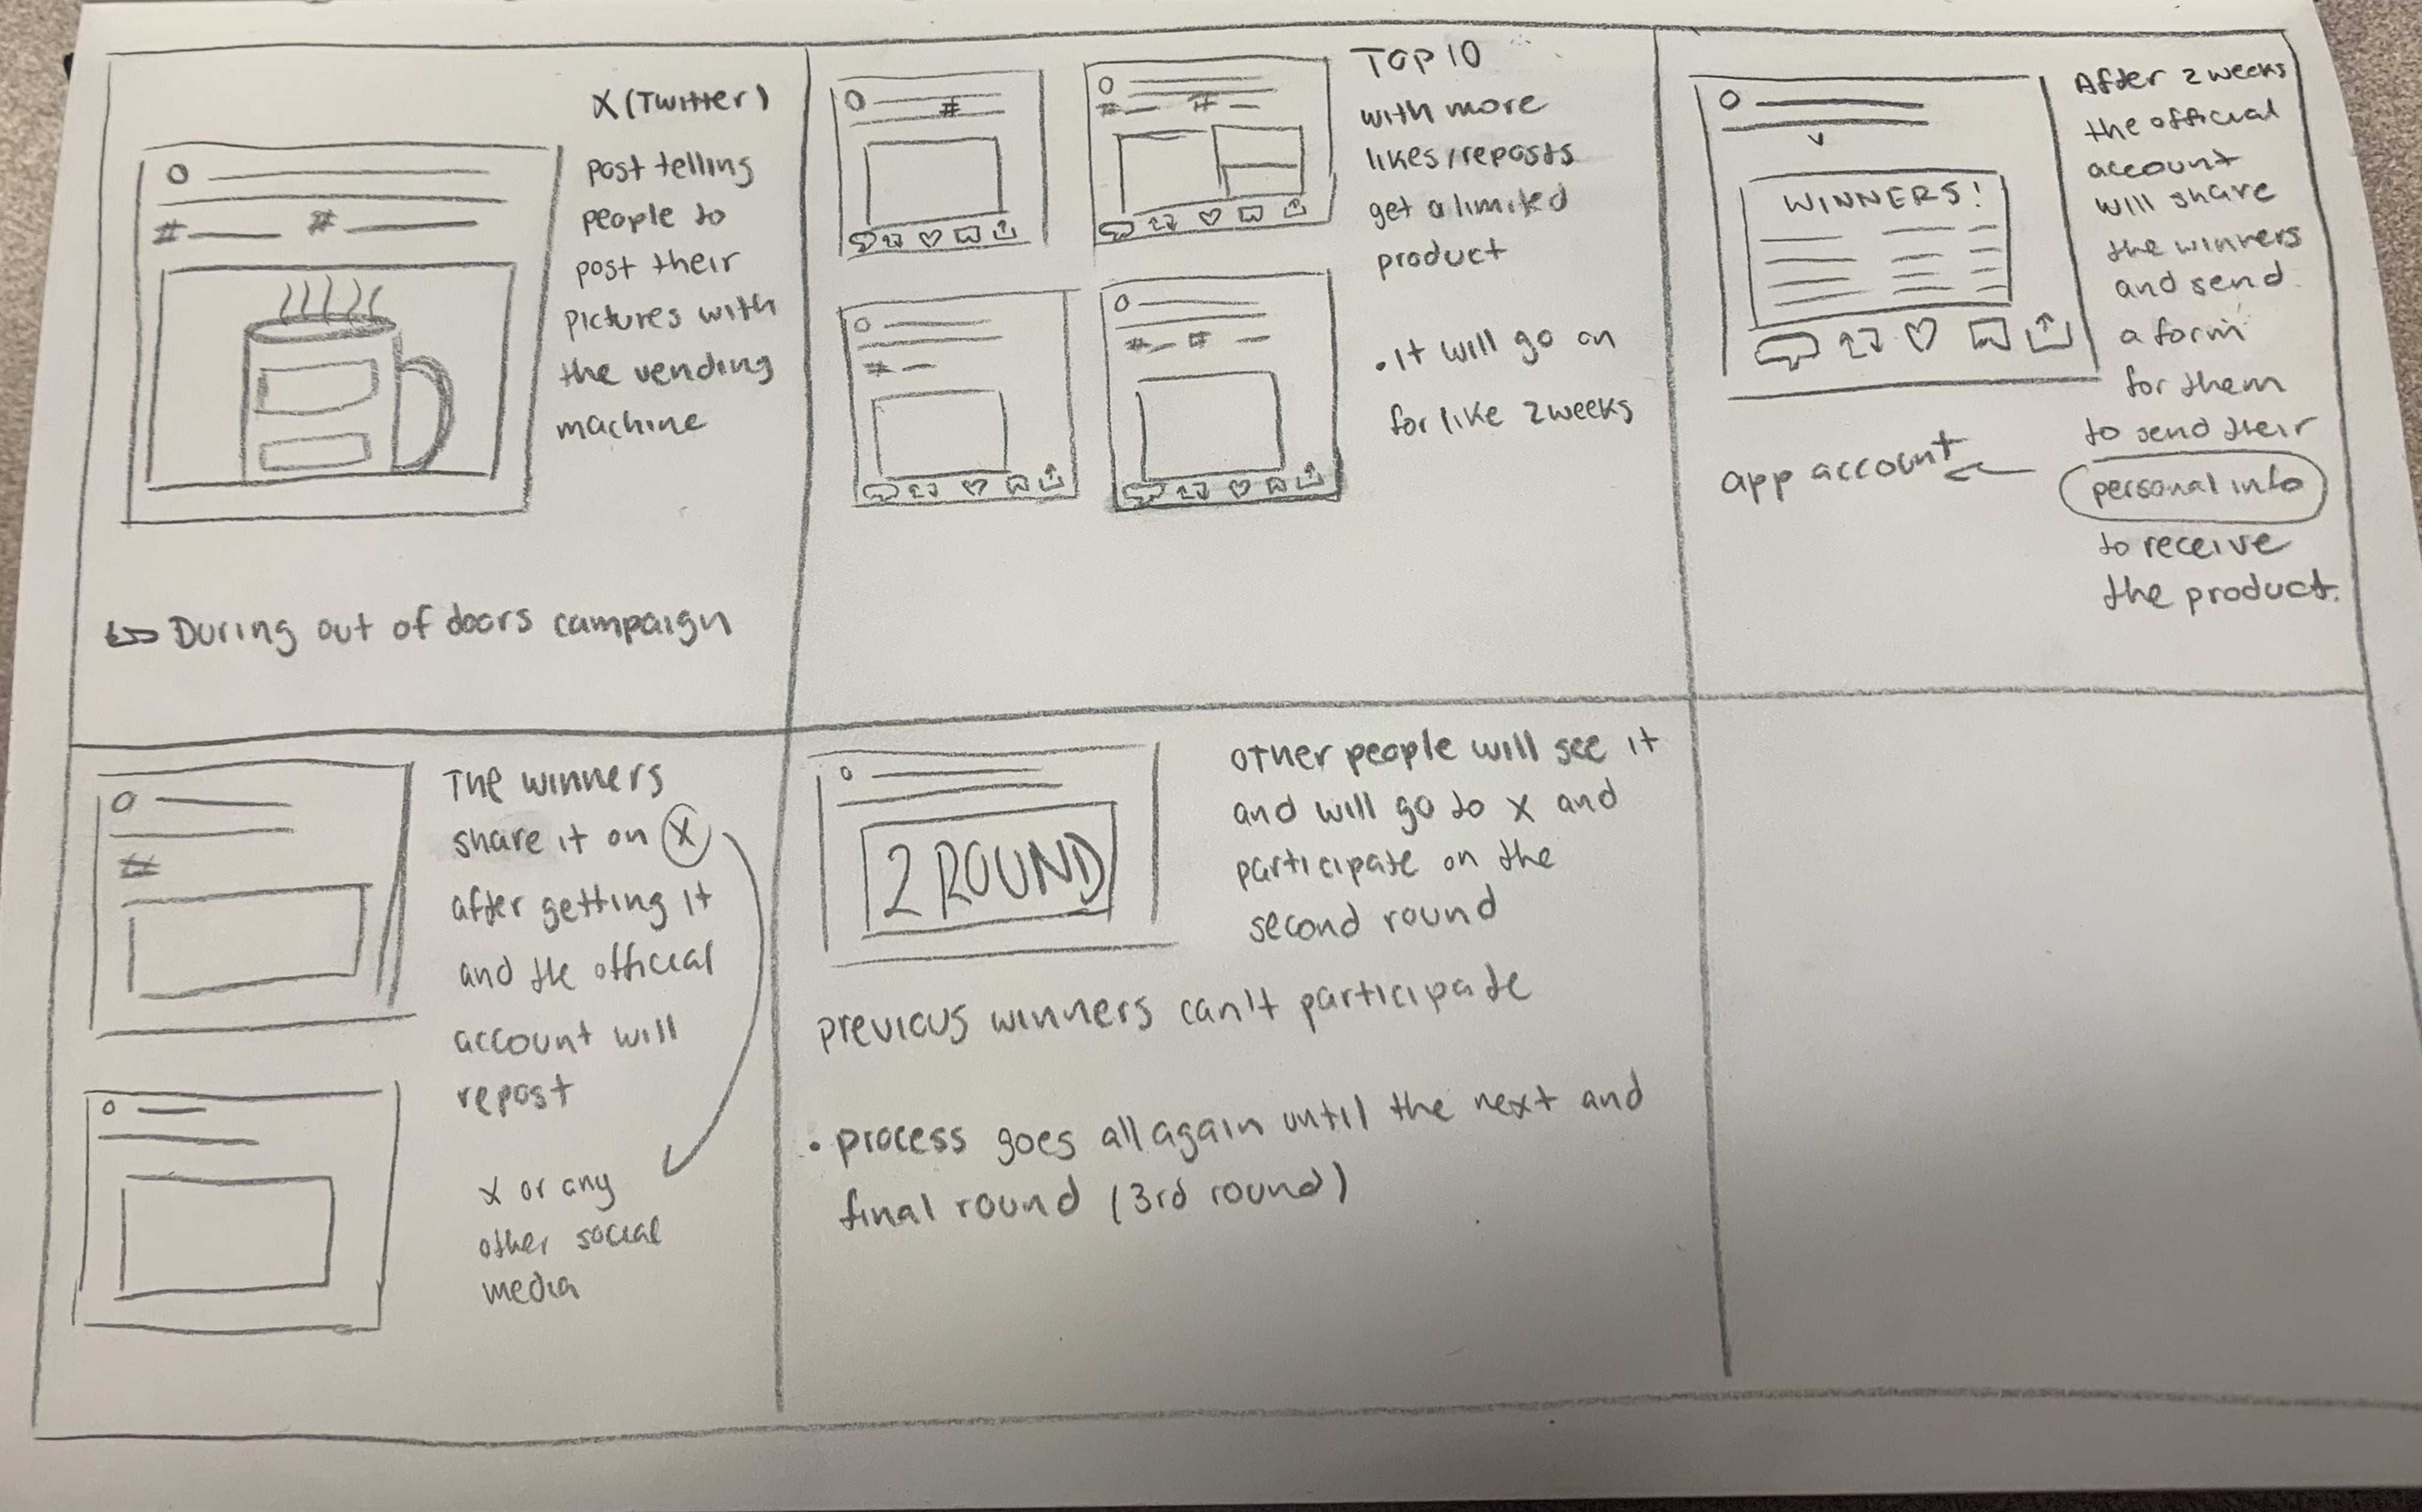 X (Twitter)
post telling
people to
post their
pictures with
the vending
machine
# #
During out of doors campaign
TOP 10
with more
likes/reposts
get a limited
product
• It will go on
for like 2 weeks
#
# #
#
# #
After 2 weeks
the official
account
will share
the winners
and send
a form
for them
to send their
personal info
to receive
the product.
WINNERS!
app account
The winners
share it on X
after getting it
and the official
account will
repost
#
X or any
other social
media
2 ROUND
other people will see it
and will go to X and
participate on the
second round
previous winners can't participate
• process goes all again until the next and
final round (3rd round)